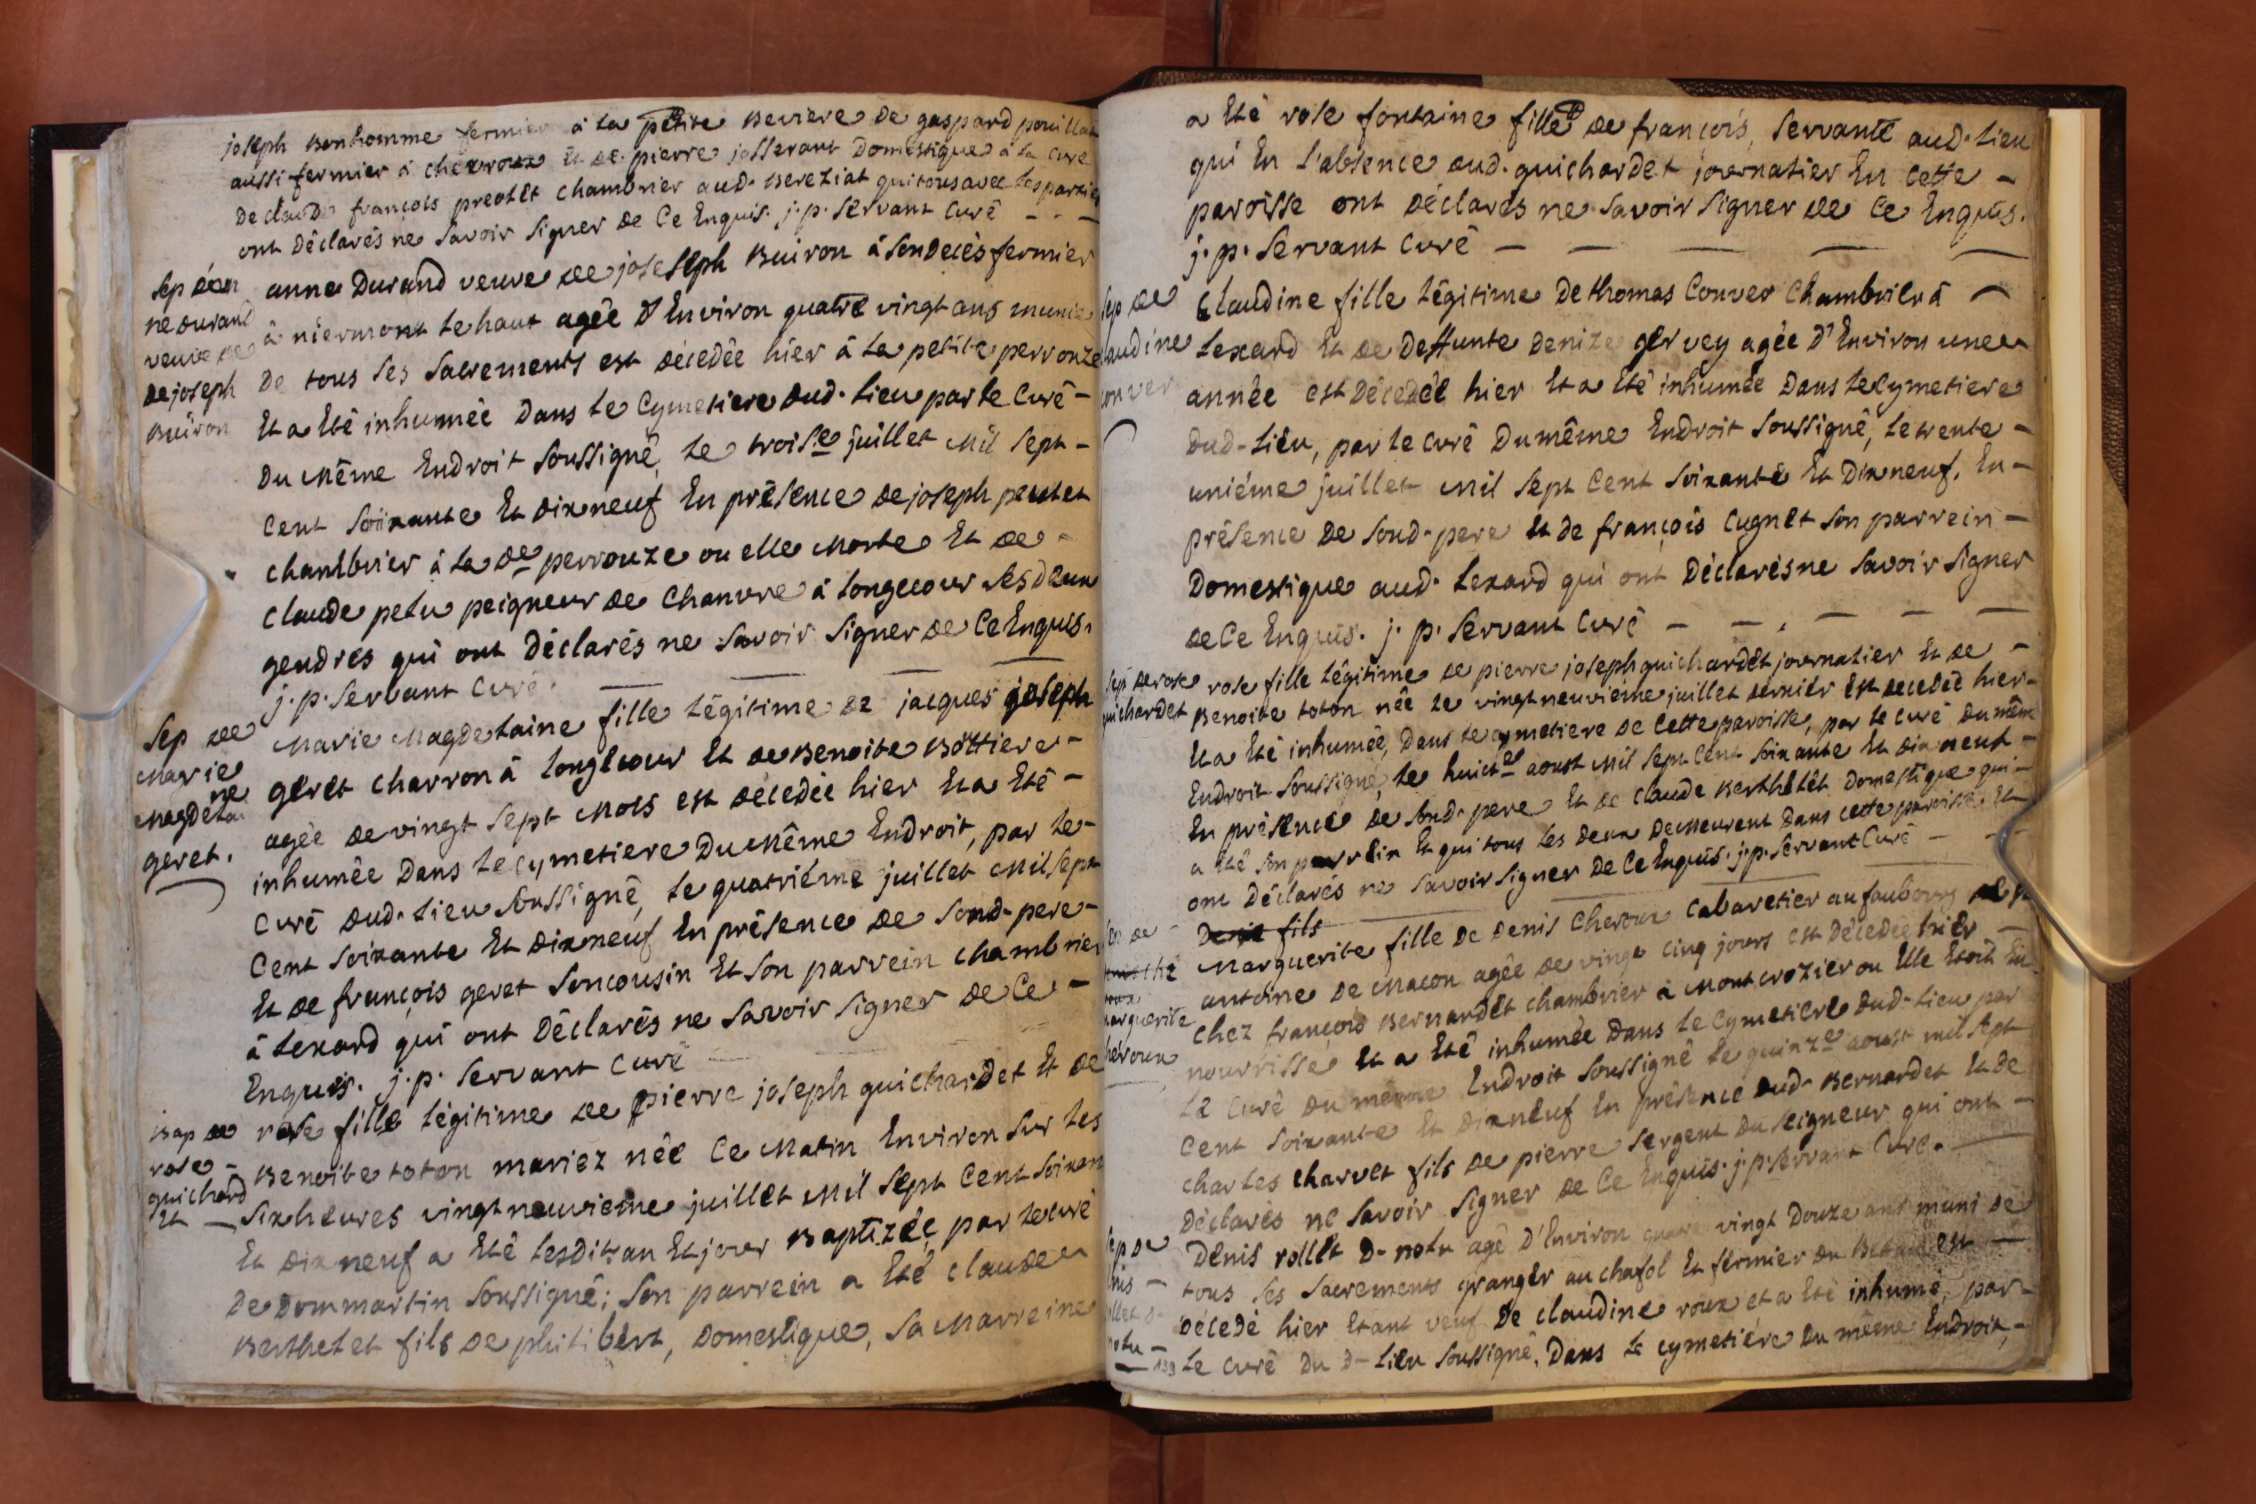 joseph Bonhomme fermier à la petite Beviere De gaspard pouillat
aussi fermier à chevroux Et de pierre josserant Domestique à la cure
De claude françois preotet chambrier aud. Bereziat qui tous avec les parties
ont Déclarés ne savoir signer de Ce Enquis. j. p. Servant Curé
Sep d'an
ne durand
veuve de
De joseph
Buiron
anne Durand veuve de joseseph Buiron à son decès fermier
à niermont le haut agée D'Environ quatre vingt ans munie
De tous ses Sacrements est décedée hier à la petite perrouze
Et a Eté inhumée Dans le Cymetiere dud. lieu par le Curé
Du même Endroit Soussigné, le troise juillet Mil Sept
Cent Soixante Et dixneuf En présence de joseph peutet
chambrier à la de perrouze ou elle Morte Et de
Claude petu peigneur de Chanvre à longecour ses deux
gendres qui ont Déclarés ne Savoir Signer de Ce Enquis.
j. p. Servant Curé.
Sep de
Marie
Magdelai
ne
geret.
Marie Magdelaine fille légitime de jacques joseph
geret charron à longecour Et de Benoite Bottiere
agée de vingt sept Mois est décedée hier Et a Eté
inhumée Dans le cymetiere Du Même Endroit, par le
Curé dud. lieu Soussigné, le quatriéme juillet Mil Sept
Cent Soixante Et dixneuf En présence de Sond. pere
Et de françois geret Son cousin Et Son parrein chambrier
à lexard qui ont Déclarés ne Savoir Signer de Ce
Enquis. j. p. Servant Curé
Bap de
rose
guichard
Et
rose fille légitime de pierre joseph guichardet Et de
Benoite toton mariez née Ce Matin Environ Sur les
Six heures vingt neuvieme juillet Mil Sept Cent Soixan
Et dixneuf a Eté lesdits an Et jour Baptizée, par le curé
De Dommartin Soussigné; Son parrein a Eté claude
Berthelet fils de philibert, Domestique, Sa Marreine
a Eté rose fontaine fille de françois, Servante aud. lieu
qui En l'absence dud. guichardet journalier En Cette
paroisse ont Déclarés ne Savoir Signer de Ce Enquis.
j. p. Servant Curé
Sep de
laudine
conver
Claudine fille légitime De thomas Conver Chambrier à
lexard Et de Deffunte Denize gervey agée D'Environ une
année est décedée hier Et a Eté inhumée Dans le Cymetiere
Dud. lieu, par le Curé Du même Endroit Soussigné, le trente
uniéme juillet Mil Sept Cent Soixante Et Dixneuf. En
présence de Sond. pere Et de françois Cugnet Son parrein
Domestique aud. lexard qui ont Déclarés ne Savoir Signer
de Ce Enquis. j. p. Servant Curé
Sep de rose
guichardet
rose fille légitime de pierre joseph guichardet journalier Et de
Benoite toton née le vingt neuvieme juillet dernier est decedée hier
Et a Eté inhumée, Dans le cymetiere de Cette paroisse, par le Curé Du même
Endroit Soussigné, le huicte aoust Mil Sept Cent Soixante Et dixneuf
En présence de Sond. pere Et de Claude Berthelet Domestique qui
a Eté Son parrein Et qui tous les deux Demeurent Dans cette paroisse Et
ont Déclarés ne Savoir Signer De Ce Enquis. j. p. Servant Curé
Denis fils
marguerite
heroux
Marguerite fille De Denis Cheroux Cabaretier au faubourg
antoine De Macon agée de vingt cinq jours est Décedée hier
chez françois Bernardet chambrier à Montcrozier ou Elle Etoit En
nourrisse Et a Eté inhumée Dans le Cymetiere dud. lieu par
le Curé Du même Endroit Soussigné le quinze aoust mil Sept
Cent Soixante Et dixneuf En présence dud. Bernardet Et de
charles charvet fils de pierre Sergent Du Seigneur qui ont
Déclarés ne Savoir Signer de Ce Enquis. j. p. Servant Curé.
Sep de
nis
llet d
notu
139
Denis rollet D- notu agé D'Environ quatre vingt Douze ans muni de
tous ses Sacrements granger au chafol Et fermier Du est
décedé hier Etant veuf De claudine roux et a Eté inhumé, par
le Curé Du D- lieu Soussigné. Dans le cymetiére Du même Endroit,